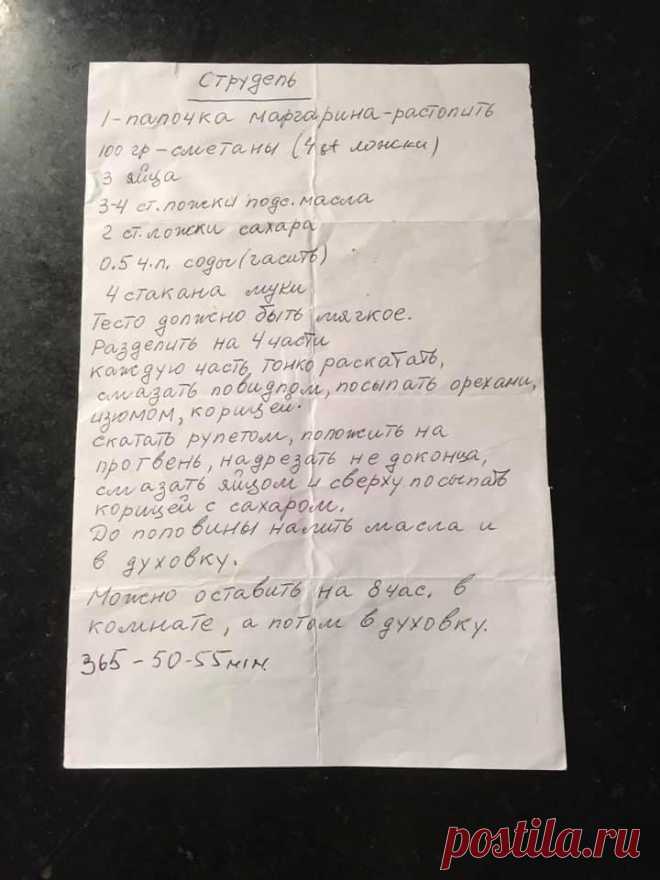 Струдель
1-палочка маргарина-растопить
100 гр-сметаны (4 st ложки)
3 яйца
3-4 ст.ложки подс.масла
2 ст.ложки сахара
0.5 ч.л. соды (гасить)
4 стакана муки
Тесто должно быть мягкое.
Разделить на 4 части
каждую часть тонко раскатать,
смазать повидлом, посыпать орехами,
изюмом, корицей.
скатать рулетом, положить на
протвень, надрезать не доконца,
смазать яйцом и сверху посыпать
корицей с сахаром.
До половины налить масла и
в духовку.
Можно оставить на 8 час. в
комнате, а потом в духовку.
365-50-55 min.
postila.ru